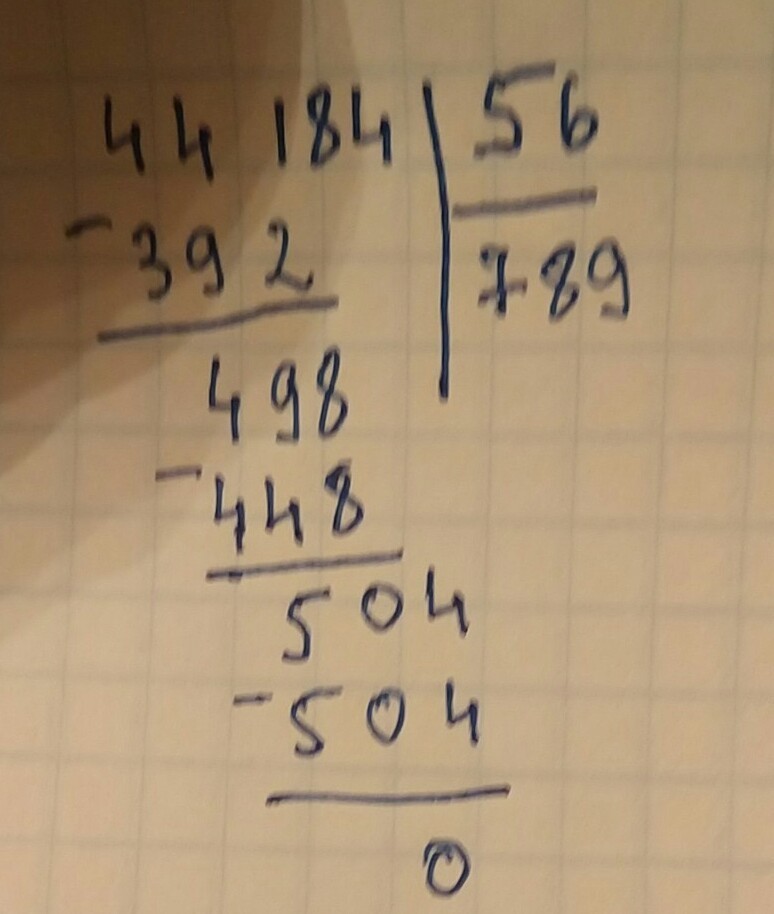 44 184 56
- 392 789
498
- 448
504
- 504
0